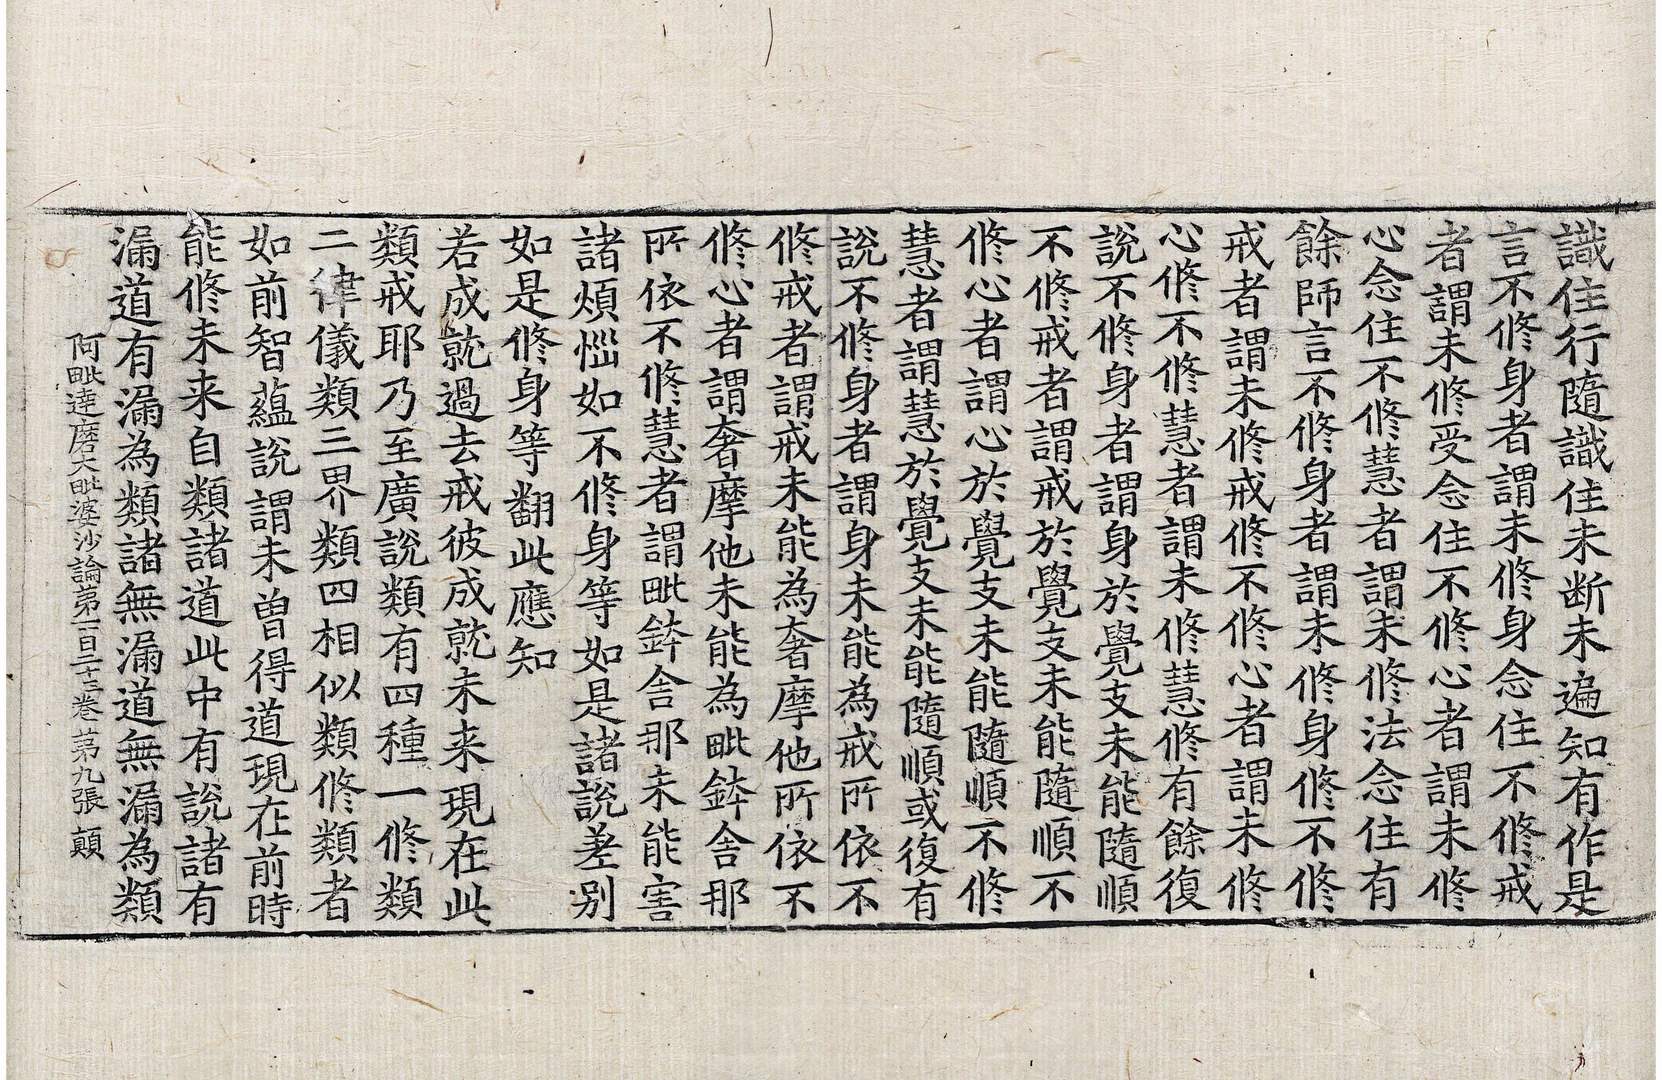 識住行隨識住未斷未遍知有作是
言不修身者謂未修身念住不修戒
者謂未修受念住不修心者謂未修
心念住不修慧者謂未修法念住有
餘師言不修身者謂未修身修不修
戒者謂未修戒修不修心者謂未修
心修不修慧者謂未修慧修有餘復
說不修身者謂身於覺支未能隨順
不修戒者謂戒於覺支未能隨順不
修心者謂心於覺支未能隨順不修
慧者謂慧於覺支未能隨順或復有
說不修身者謂身未能為戒所依不
修戒者謂戒未能為奢摩他所依不
修心者謂奢摩他未能為毗鉢舍那
所依不修慧者謂毗鉢舍那未能害
諸煩惱如不修身等如是諸說差別
如是修身等翻此應知
若成就過去戒彼成就未来現在此
類戒耶乃至廣說類有四種一修類
二律儀類三界類四相似類修類者
如前智蘊說謂未曾得道現在前時
能修未来自類諸道此中有說諸有
漏道有漏為類諸無漏道無漏為類
阿毗達磨大毗婆沙論第一百二十三卷 第九張 顛